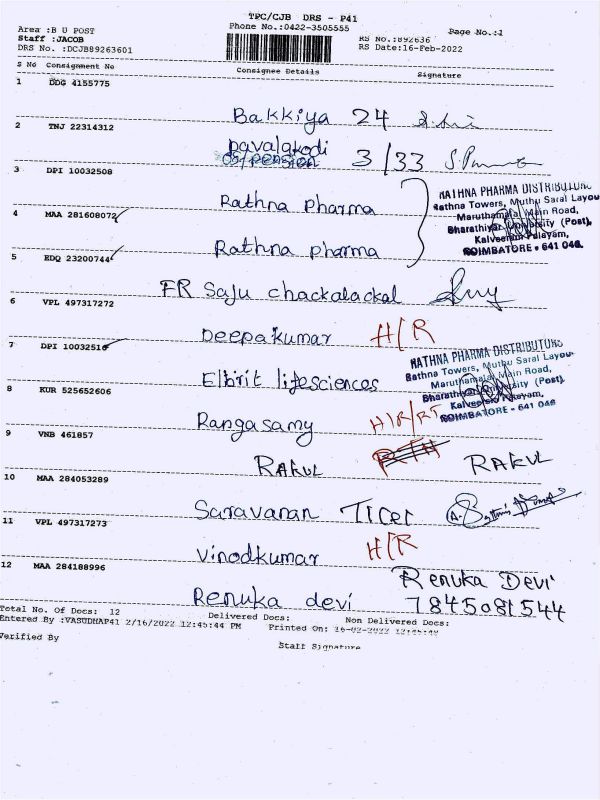 TPC/CJB DRS - P41
Area :B U POST
Phone No.:0422-3505555
Page No.:1
Staff :JACOB
RS No.:892636
DRS No. :DCJB89263601
RS Date:16-Feb-2022
S No Consignment No Consignee Details Signature
1 DDG 4155775
Bakkiya 24
2 TNJ 22314312
pavalakodi
3/33
3 DPI 10032508
Rathna pharma
RATHNA PHARMA DISTRIBUTORS
Rathna Towers, Muthu Saral Layout
4 MAA 281608072
Maruthamalai Main Road,
Bharathiyar University (Post),
Rathna pharma
Kalveeram Palayam,
5 EDQ 23200744
COIMBATORE - 641 046.
FR Saju chackalackal
6 VPL 497317272
Deepakumar H/R
7 DPI 10032516
RATHNA PHARMA DISTRIBUTORS
Rathna Towers, Muthu Saral Layout
Elbrit lifesciences
Maruthamalai Main Road,
Bharathiyar University (Post),
8 KUR 525652606
Kalveeram Palayam,
COIMBATORE - 641 046
Rangasamy H/R/RT
9 VNB 461857
RAKUL RAKUL
10 MAA 284053289
Saravanan
11 VPL 497317273
Vinodkumar H/R
12 MAA 284188996
Renuka Devi
Renuka devi 7845081544
Total No. Of Docs: 12 Delivered Docs: Non Delivered Docs:
Entered By :VASUDHAP41 2/16/2022 12:45:44 PM Printed On: 16-02-2022 12:45:48
Verified By Staff Signature